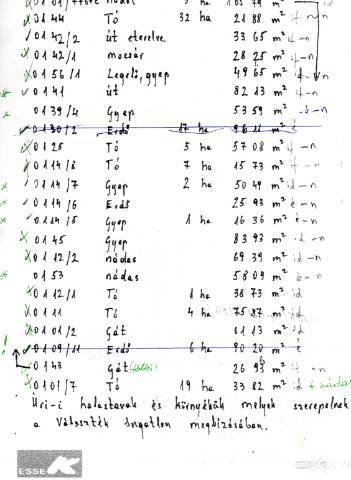 0144 Tó 32 ha 21 88 m² i - n
0142/2 út eteretve 33 65 m² i - n
0142/1 mocsár 28 25 m² i - n
0156/1 Legelő, gyep 49 65 m² i - n
0141 út 82 13 m² i - n
0139/4 Gyep 53 59 m² é - n
0130/2 Erdő 17 ha 96 11 m² é
0125 Tó 5 ha 57 08 m² i - n
0114/8 Tó 7 ha 15 73 m² i - n
0114/7 Gyep 2 ha 50 49 m² id - n
0114/6 Erdő 25 93 m² é - n
0114/5 Gyep 1 ha 16 36 m² é - n
0145 Gyep 83 93 m² i - n
0112/2 nádas 69 39 m² id - n
0153 nádas 58 09 m² é - n
0112/1 Tó 1 ha 38 73 m² id
0111 Tó 4 ha 75 87 m² id
0101/2 Gát 61 13 m² id
0109/11 Erdő 6 ha 90 20 m² é
0143 Gát 26 93 m² id - n
0101/7 Tó 19 ha 33 82 m² id + nádas
Úri-i halastavak és környékük melyek szerepelnek
a Választék Ingatlan megbízásában.
ESSE